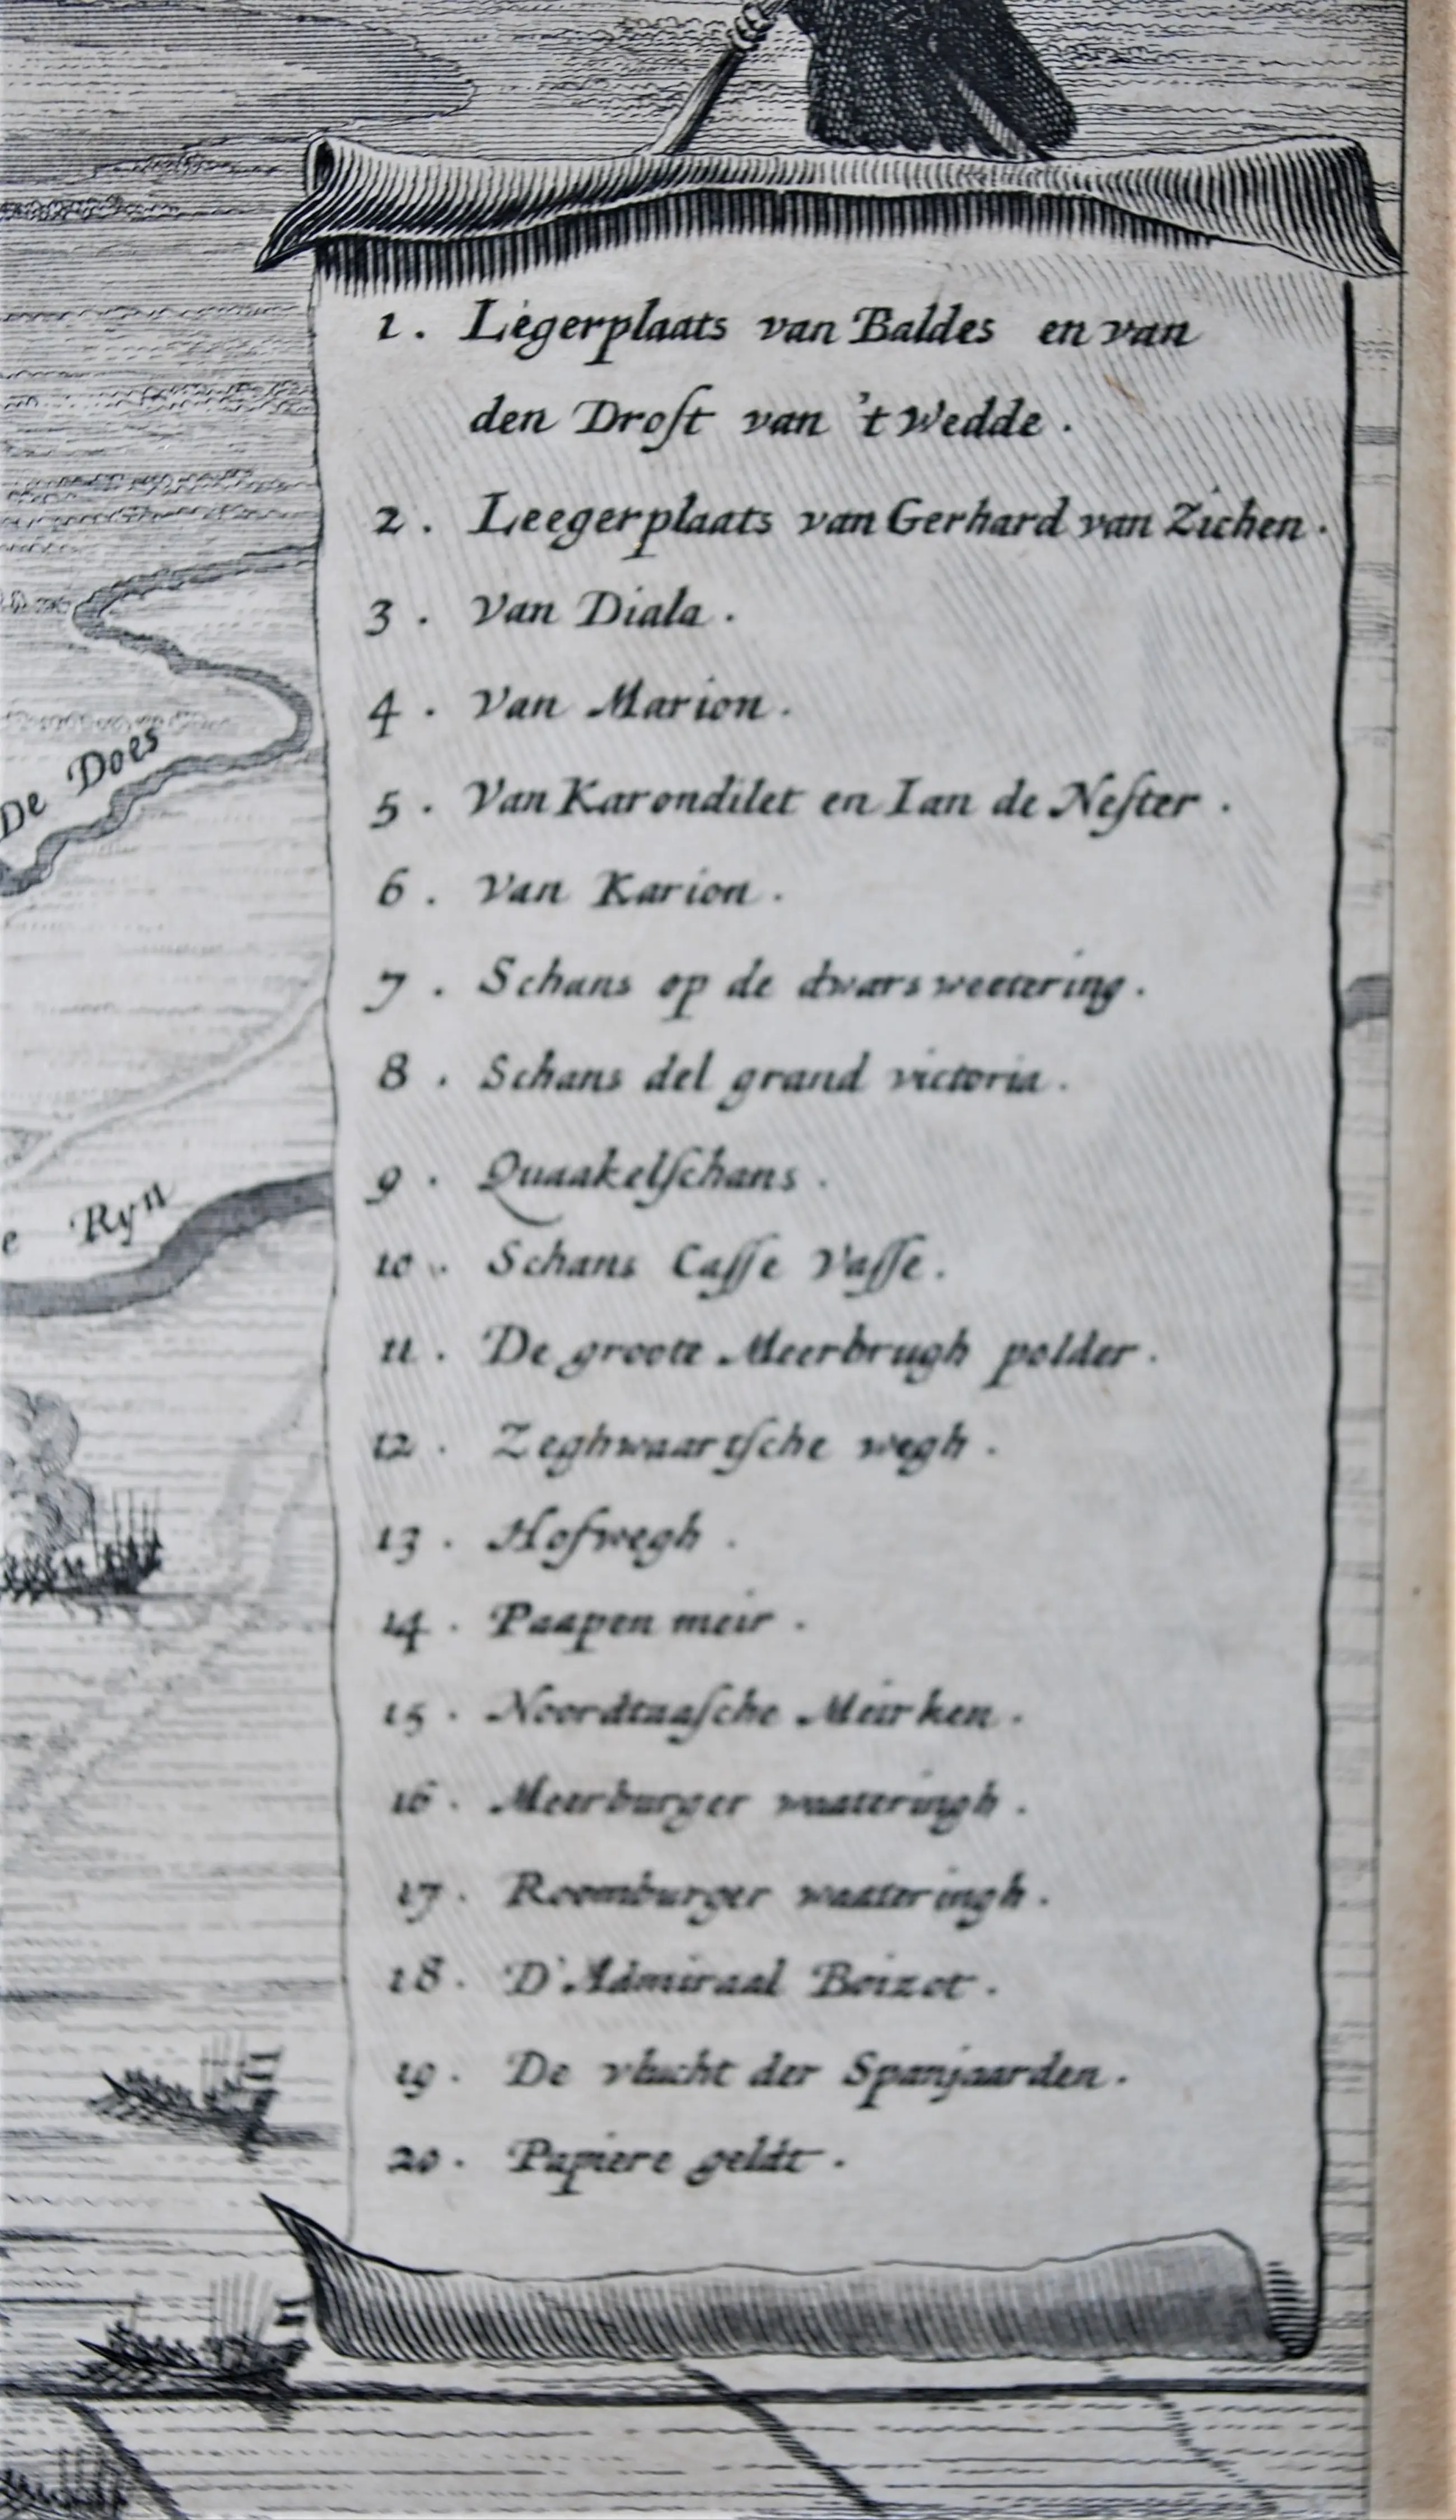 1. Legerplaats van Baldes en van
den Droſt van 't Wedde.
2. Leegerplaats van Gerhard van Zichen.
3. Van Diala.
4. Van Marion.
5. Van Karondilet en Ian de Neſter.
6. Van Karion.
7. Schans op de dwars weetering.
8. Schans del grand victoria.
9. Quaakelſchans.
10. Schans Caſſe Vaſſe.
11. De groote Meerbrugh polder.
12. Zeghwaartſche wegh.
13. Hofwegh.
14. Paapen meir.
15. Noordtaaſche Meirken.
16. Meerburger waateringh.
17. Roomburger waateringh.
18. D'Admiraal Boizot.
19. De vlucht der Spanjaarden.
20. Papiere geldt.
De Does
e Ryn